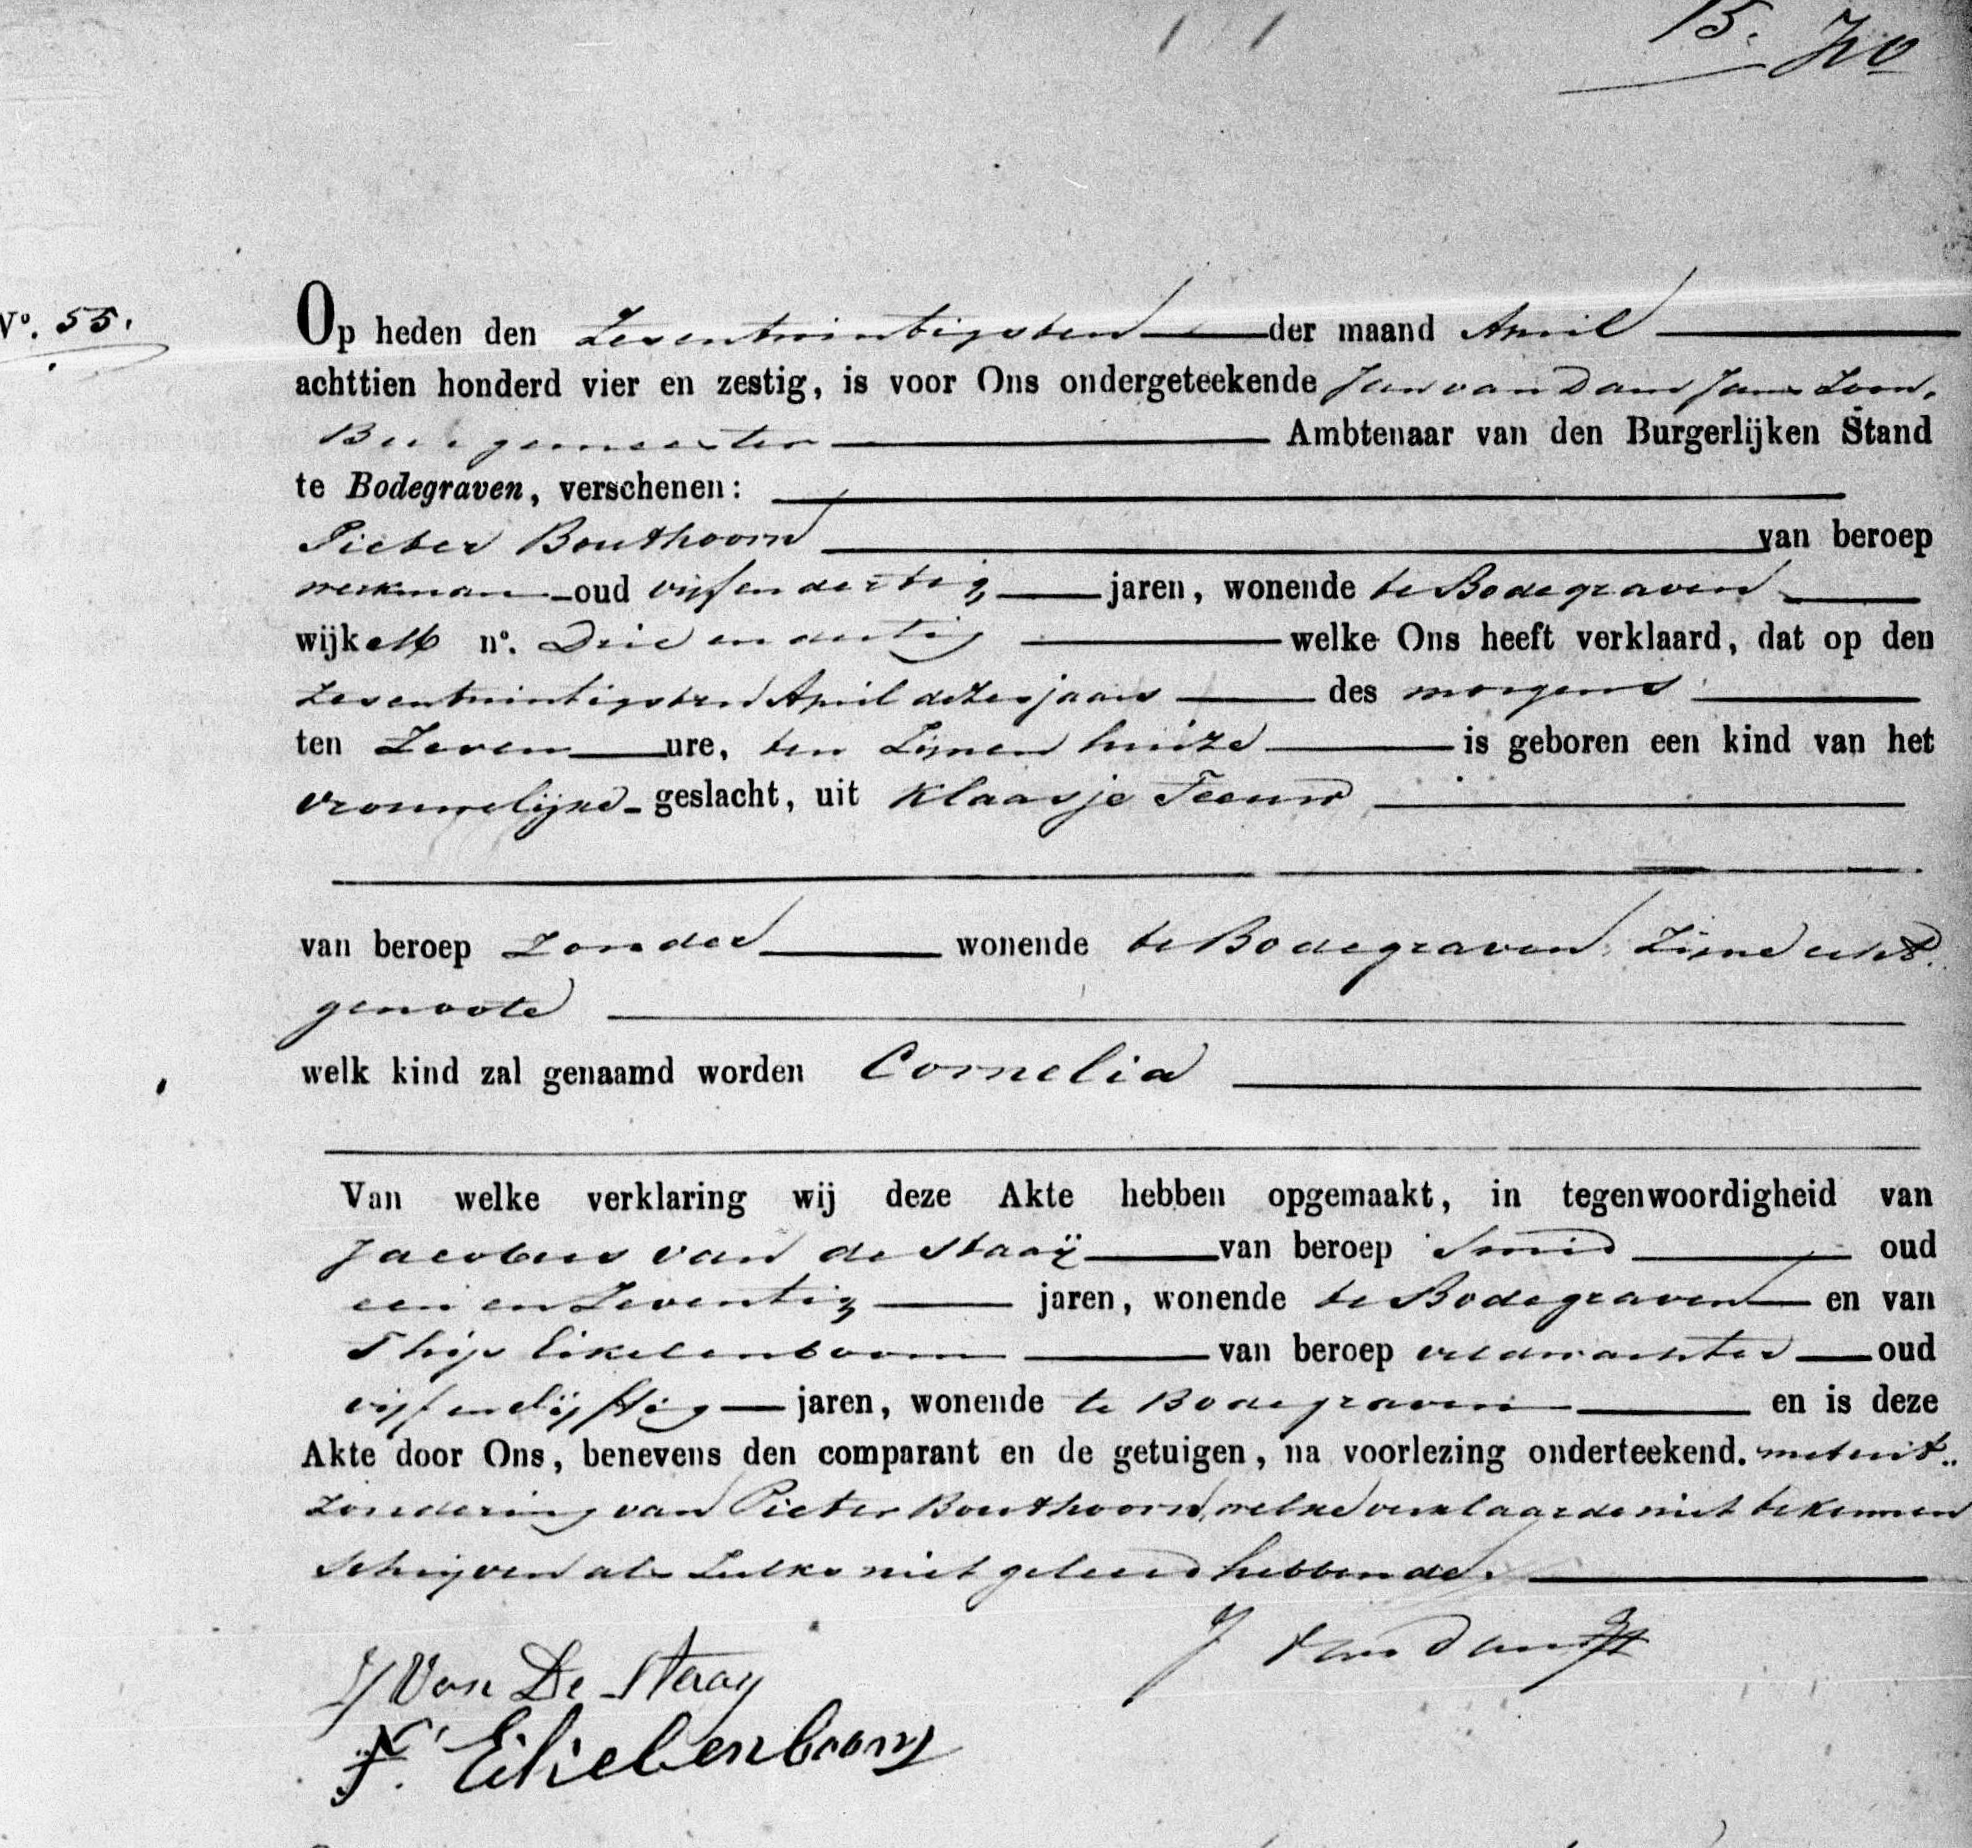 15.
Nº. 55.
Op heden den Zesentwintigsten der maand April
achttien honderd vier en zestig, is voor Ons ondergeteekende Jan van Dam Jans Zoon,
Burgemeester Ambtenaar van den Burgerlijken Stand
te Bodegraven, verschenen:
Pieter Bouthoorn van beroep
werkman oud vijfendertig jaren, wonende te Bodegraven
wijk nº. Drie en dertig welke Ons heeft verklaard, dat op den
Zesentwintigsten April dezes jaars des morgens
ten Zeven ure, ten Zijnen huize is geboren een kind van het
vrouwelijke geslacht, uit Klaasje Teeuw
van beroep Zonder wonende te Bodegraven, Zijne echt
genoote
welk kind zal genaamd worden Cornelia
Van welke verklaring wij deze Akte hebben opgemaakt, in tegenwoordigheid van
Jacobus van de Staaij van beroep Smid oud
een en Zeventig jaren, wonende te Bodegraven en van
Thijs Eikelenboom van beroep veldwachter oud
vijfenvijftig jaren, wonende te Bodegraven en is deze
Akte door Ons, benevens den comparant en de getuigen, na voorlezing onderteekend. met uit..
Zondering van Pieter Bouthoorn, welke verklaarde niet te kunnen
Schrijven als Zulks niet geleerd hebbende.
J van Dam JZ
J Van De Staay
T. Eikelenboom